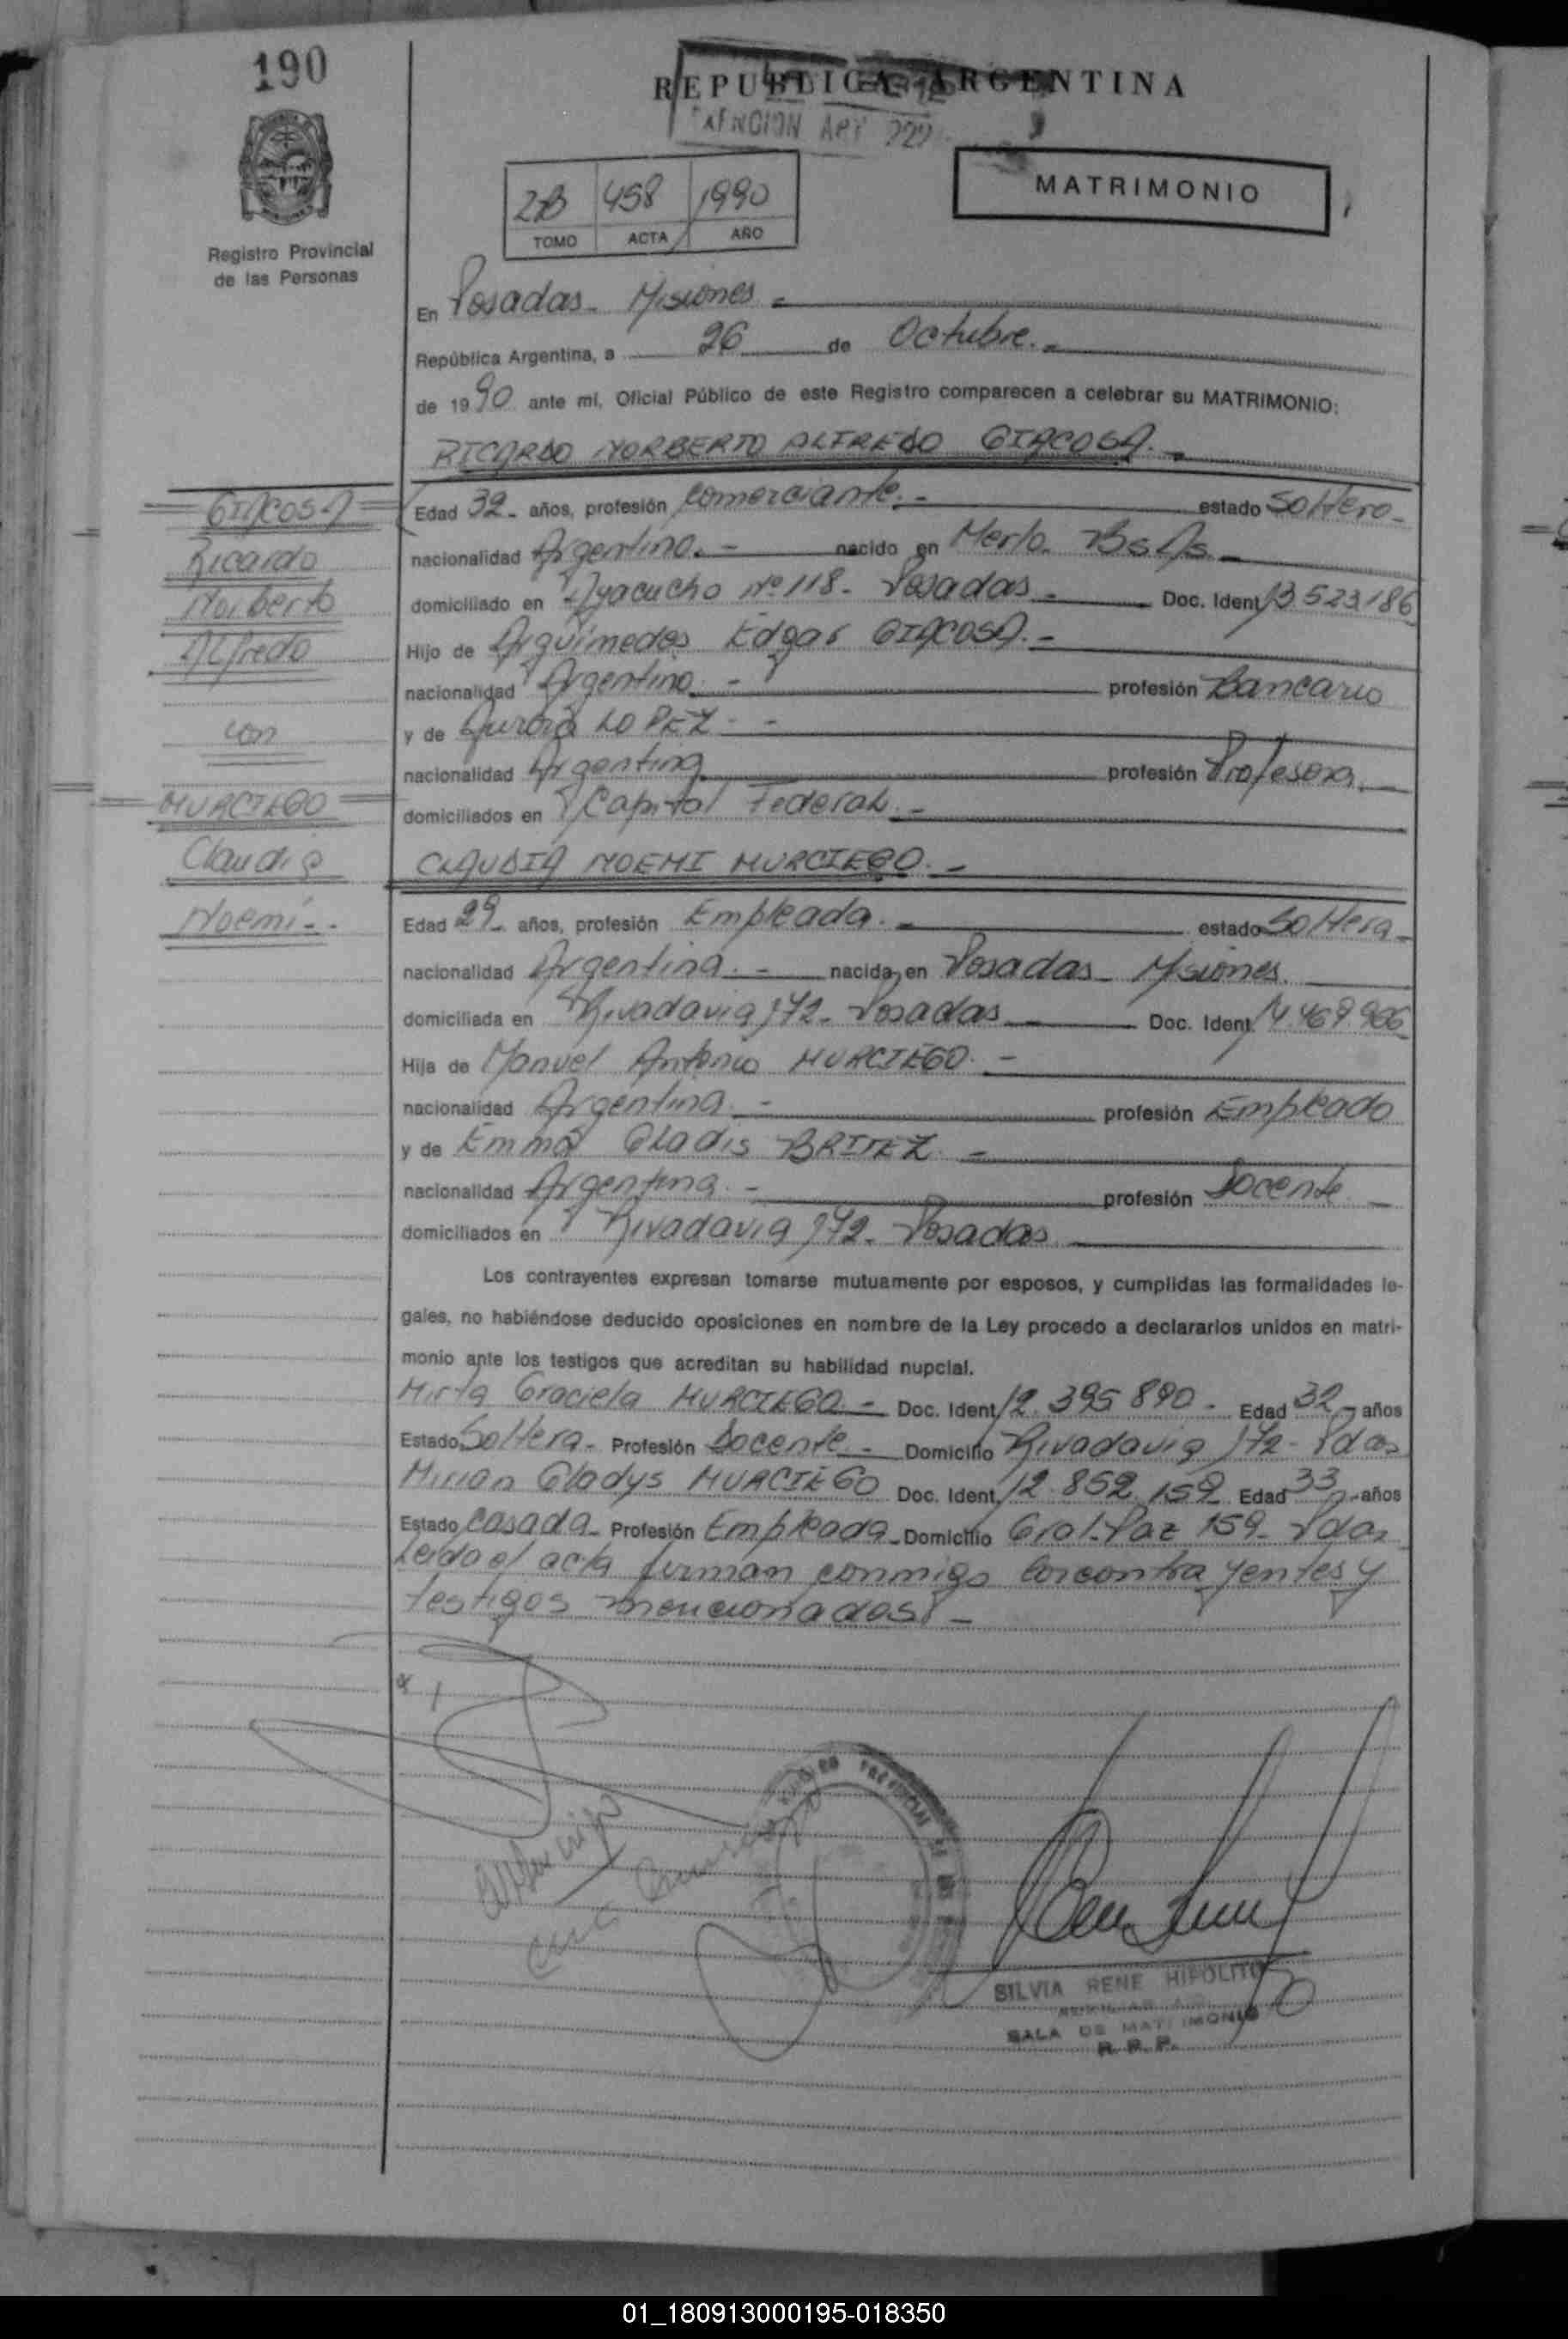 190
REPUBLICA ARGENTINA
ART
Registro Provincial
de las Personas
MATRIMONIO
2B 458 1990
TOMO ACTA AÑO
En Posadas - Misiones
República Argentina, a 26 de Octubre.-
de 1990 ante mí, Oficial Público de este Registro comparecen a celebrar su MATRIMONIO:
RICARDO NORBERTO ALFREDO GIACOSA.-
GIACOSA
Ricardo
Norberto
Alfredo
con
MURCIEGO
Claudia
Noemí.-
Edad 32- años, profesión Comerciante.- estado Soltero-
nacionalidad Argentino.- nacido en Merlo. Bs As-
domiciliado en Ayacucho Nº 118- Posadas- Doc. Ident. 13.523.186
Hijo de Arquímedes Edgar GIACOSA.-
nacionalidad Argentino.- profesión Bancario
y de Aurora LOPEZ.-
nacionalidad Argentina profesión Profesora.-
domiciliados en Capital Federal.-
CLAUDIA NOEMI MURCIEGO.-
Edad 29- años, profesión Empleada.- estado Soltera-
nacionalidad Argentina.- nacida en Posadas - Misiones.
domiciliada en Rivadavia 172- Posadas Doc. Ident. 14.469.906
Hija de Manuel Antonio MURCIEGO.-
nacionalidad Argentina.- profesión Empleado
y de Emma Gladis BRITEZ.-
nacionalidad Argentina.- profesión Docente-
domiciliados en Rivadavia 172- Posadas
Los contrayentes expresan tomarse mutuamente por esposos, y cumplidas las formalidades le-
gales, no habiéndose deducido oposiciones en nombre de la Ley procedo a declararlos unidos en matri-
monio ante los testigos que acreditan su habilidad nupcial.
Mirta Graciela MURCIEGO.- Doc. Ident. 12.395.890- Edad 32- años
Estado Soltera- Profesión Docente- Domicilio Rivadavia 172- Pdas
Mirian Gladys MURCIEGO Doc. Ident. 12.852.159 Edad 33- años
Estado Casada- Profesión Empleada- Domicilio Gral. Paz 159- Pdas
Leida el acta firman conmigo los contrayentes y
testigos mencionados.-
SILVIA RENE HIPOLITO
SALA DE MATRIMONIO
R. P. P.
01_180913000195-018350